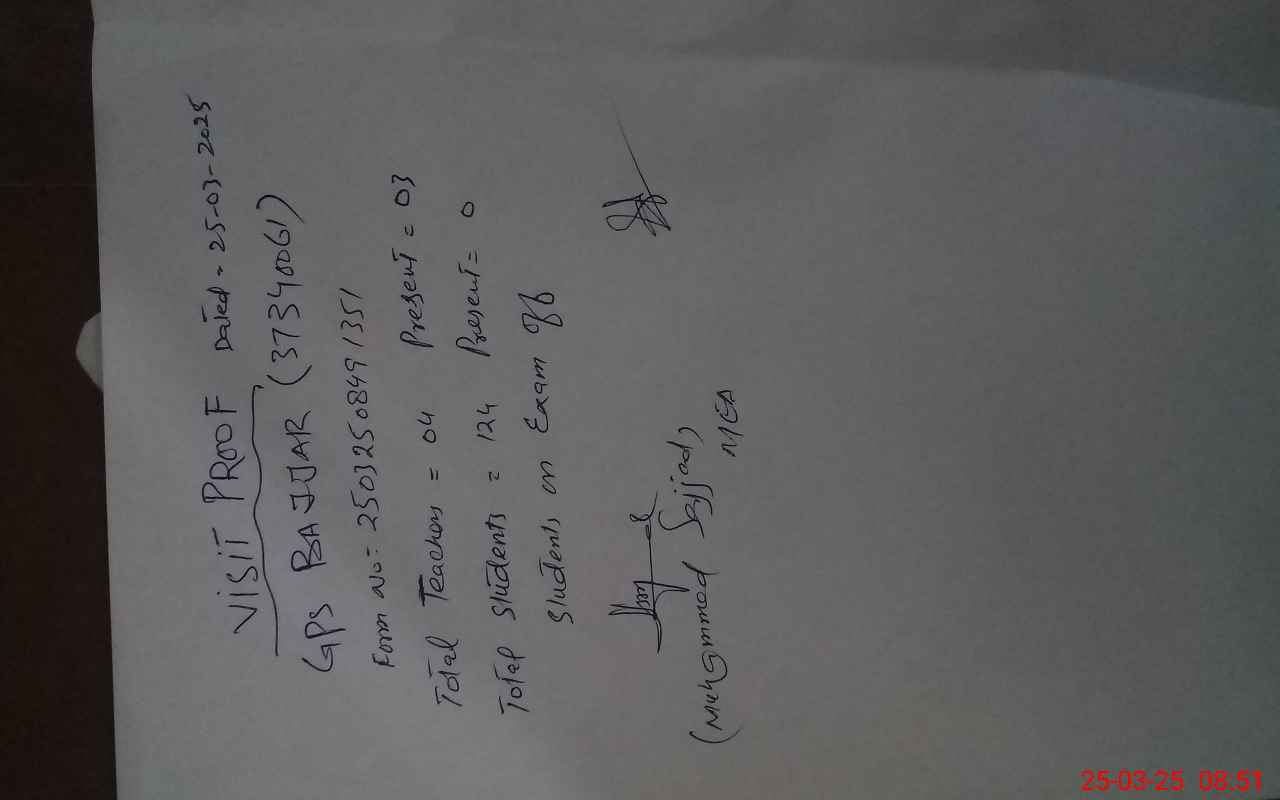 VISIT PROOF Dated - 25-03-2025
GPS BAJJAR (37340061)
Form No:= 25032508491351
Total Teachers = 04 Present = 03
Total Students = 124 Present = 0
Students on Exam
(Muhammad Sajjad)
MEA
25-03-25 08:51